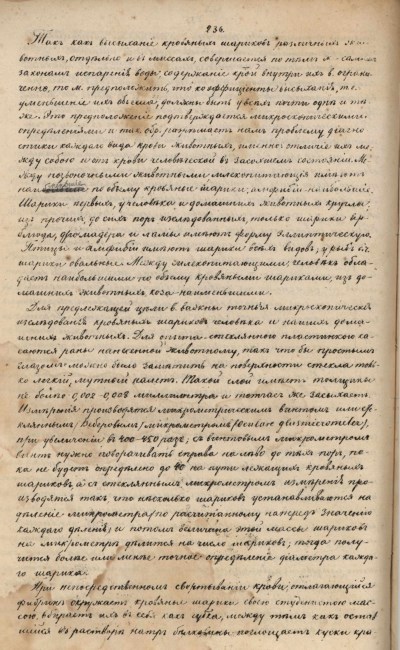 236.
Такъ какъ высыханіе кровяныхъ шариковъ различныхъ жи-
вотныхъ, отдѣльно и въ массахъ, совершается по тѣмъ же самымъ
законамъ испаренія воды, содержаніе крови внутри ихъ въ ограни-
ченно, то м. предположить, что коэффиціенты высыханія, т. е.
уменьшеніе ихъ объема, должны быть у всѣхъ почти одни и тѣ
же. Это предположеніе подтверждается микроскопическими
опредѣленіями и так. обр. разрѣшаетъ намъ проблему діагно-
стики каждаго вида крови животныхъ, именно отличіе ихъ ме-
жду собою и отъ крови человѣческой въ засохшемъ состояніи. Ме-
жду позвоночными животными млекопитающія имѣютъ
по объему кровяные шарики, амфибіи наибольшіе.
Шарики первыхъ, у человѣка и домашнихъ животныхъ круглы,
изъ прочихъ до сихъ поръ изслѣдованныхъ, только шарики вер-
блюда, дромадера и ламы имѣютъ форму эллиптическую.
Птицы и амфибіи имѣютъ шарики всѣхъ видовъ, у рыбъ
шарики овальные. Между млекопитающими, человѣкъ обла-
даетъ наибольшими по объему кровяными шариками, изъ до-
машнихъ животныхъ, коза наименьшими.
Для предлежащей цѣли важны точныя микроскопическія
изслѣдованія кровяныхъ шариковъ человѣка и нашихъ дома-
шнихъ животныхъ. Для опыта стеклянною пластинкою ка-
саются раны нанесенной животному, такъ что бы простымъ
глазомъ можно было замѣтить на поверхности стекла толь-
ко легкій, мутный налетъ. Такой слой имѣетъ толщины
не болѣе 0,002-0,008 миллиметра и тотчасъ же засыхаетъ.
Измѣренія производятся микрометрическимъ винтомъ или сте-
кляннымъ, микрометромъ
при увеличеніи въ 400-450 разъ; съ винтовымъ микрометромъ
винтъ нужно поворачивать справа на лѣво до тѣхъ поръ, по-
ка не будетъ опредѣлено до 40 на пути лежащихъ кровяныхъ
шариковъ, а съ стекляннымъ микрометромъ измѣренія про-
изводятся такъ, что нѣсколько шариковъ устанавливаются на
дѣленіе микрометра (по расчитанному напередъ значенію
каждаго дѣленія) и потомъ величина этой массы шариковъ
на микрометрѣ дѣлится на число шариковъ; тогда полу-
чится болѣе или менѣе точное опредѣленіе діаметра каждаго
шарика.
При непосредственномъ свертываніи крови, отлагающійся
фибринъ окружаетъ кровяные шарики своею студенистою мас-
сою, вбираетъ ихъ въ себя какъ губка, между тѣмъ какъ остав-
шійся въ растворѣ натръ бѣлковины поглощаетъ куски кро-